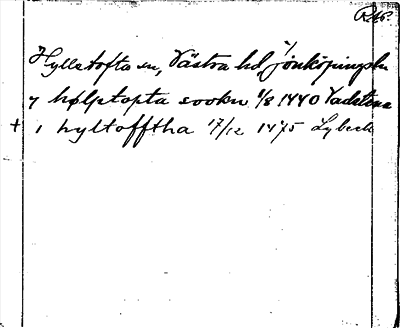 Hylletofta sn, Västra hd, Jönköpings ln
y hølptopta sookn 1/8 1440 Vadstena
+ i hyltofftha 17/12 1475 Lybeck